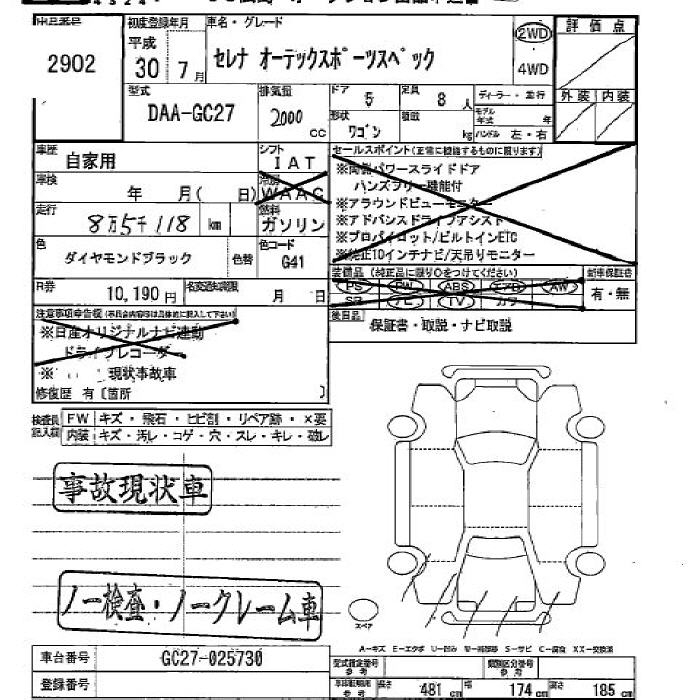 2902
初度登録年月
平成
30年 7月
車名・グレード
セレナ オーテックスポーツスペック
2WD
4WD
評価点
外装 内装
型式
DAA-GC27
排気量
2000
cc
ドア
5
定員
8 人
形状
ワゴン
積載
kg
ディーラー・並行
モデル年式 年
ハンドル 左・右
車歴
自家用
シフト
IAT
車検
年 月( 日)
冷房
WAAC
走行
8万5千118 km
燃料
ガソリン
色
ダイヤモンドブラック
色替
色コード
G41
R券
10,190円
名変期限
月 日
セールスポイント(正常に機能するものに限ります)
※両側パワースライドドア
ハンズフリー機能付
※アラウンドビューモニター
※アドバンスドライブアシスト
※プロパイロット/ビルトインETC
※純正10インチナビ/天吊りモニター
装備品(純正品に限り○をつけてください)
PS PW ABS エアB AW
SR ナビ TV カワ
新車保証書
有・無
後日品
保証書・取説・ナビ取説
注意事項申告欄
※日産オリジナルナビ連動
ドライブレコーダー
※ 現状事故車
修復歴 有〔箇所 〕
検査員記入欄
FW キズ・飛石・ヒビ割・リペア跡・×要
内装 キズ・汚レ・コゲ・穴・スレ・キレ・破レ
事故現状車
ノー検査・ノークレーム車
スペア
A-キズ E-エクボ U-凹み W-補修跡 S-サビ C-腐食 XX-交換済
車台番号
GC27-025730
登録番号
型式指定番号
参考
類別区分番号
参考
長さ 481 cm
幅 174 cm
高さ 185 cm